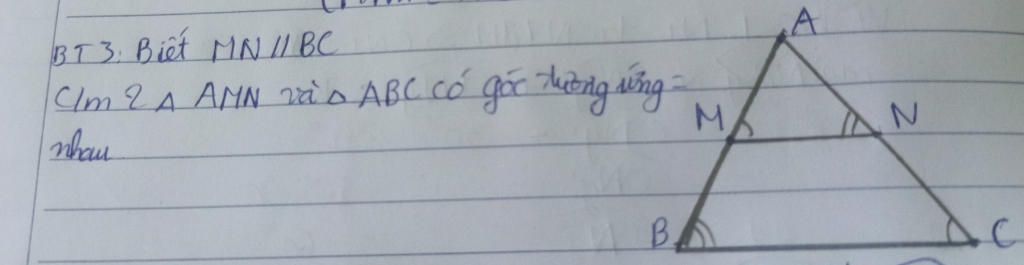 BT3: Biết MN // BC
C/m 2 △ AMN và △ ABC có góc tương ứng =
nhau
A
M N
B C